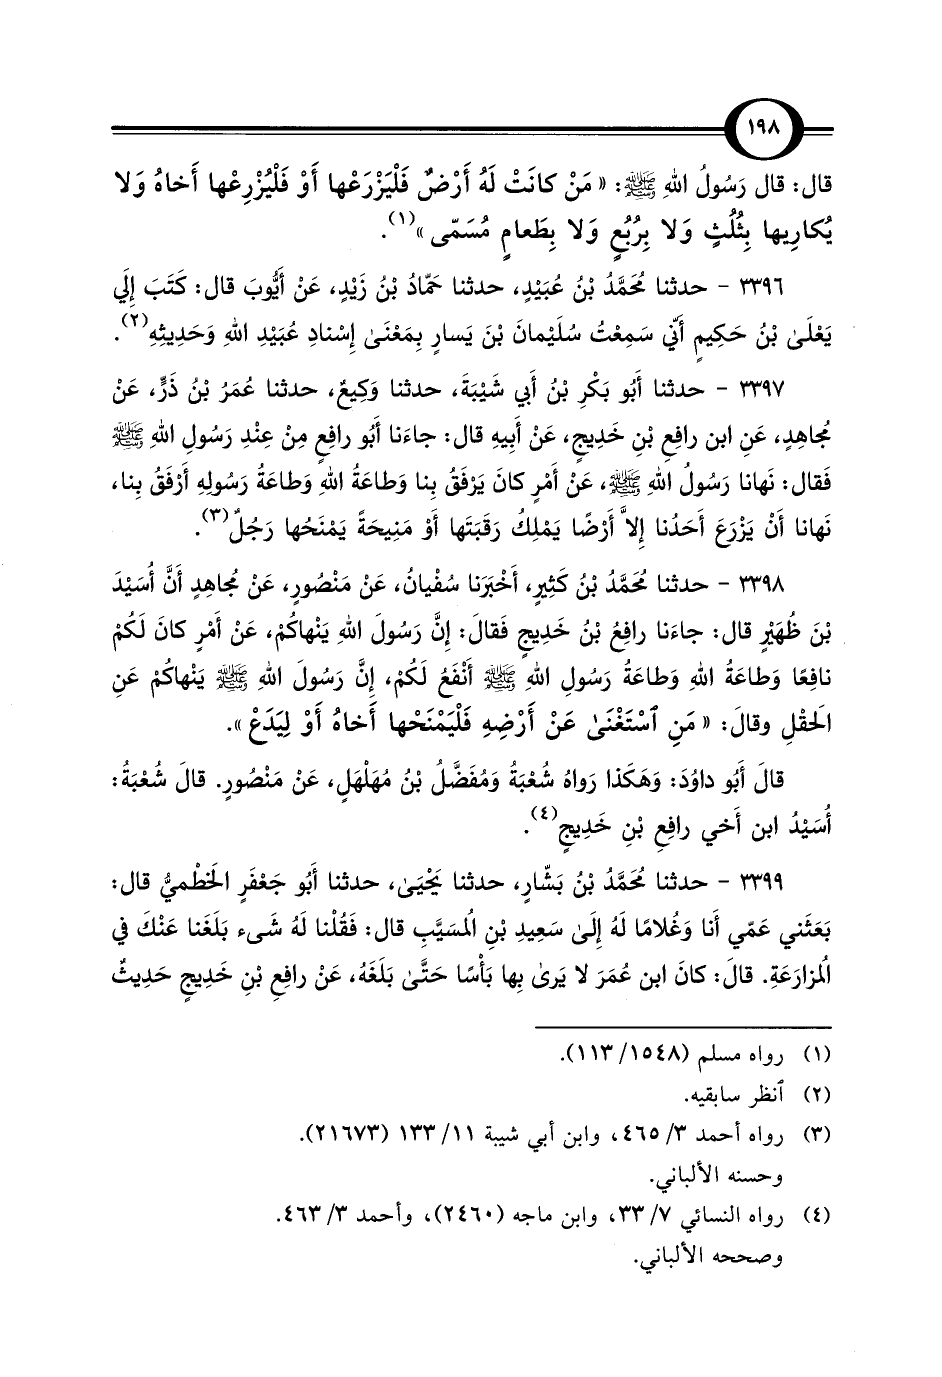 ١٩٨
قال: قال رَسُولُ اللهِ ﷺ: « مَنْ كانَتْ لَهُ أَرْضٌ فَلْيَزْرَعْها أَوْ فَلْيُزْرِعْها أَخاهُ وَلا
يُكارِيها بِثُلُثٍ وَلا بِرُبُعٍ وَلا بِطَعامٍ مُسَمّى »(١).
٣٣٩٦ - حدثنا مُحَمَّدُ بْنُ عُبَيْدٍ، حدثنا حَمّادُ بْنُ زَيْدٍ، عَنْ أَيُّوبَ قال: كَتَبَ إِلَي
يَعْلَىٰ بْنُ حَكِيمٍ أَنّي سَمِعْتُ سُلَيْمانَ بْنَ يَسارٍ بِمَعْنَىٰ إِسْنادِ عُبَيْدِ اللهِ وَحَدِيثِهِ(٢).
٣٣٩٧ - حدثنا أَبُو بَكْرِ بْنُ أَبي شَيْبَةَ، حدثنا وَكِيعٌ، حدثنا عُمَرُ بْنُ ذَرٍّ، عَنْ
مُجاهِدٍ، عَنِ ابن رافِعِ بْنِ خَدِيجٍ، عَنْ أَبِيهِ قال: جاءَنا أَبُو رافِعٍ مِنْ عِنْدِ رَسُولِ اللهِ ﷺ
فَقال: نَهانا رَسُولُ اللهِ ﷺ، عَنْ أَمْرٍ كانَ يَرْفَقُ بِنا وَطاعَةُ اللهِ وَطاعَةُ رَسُولِهِ أَرْفَقُ بِنا،
نَهانا أَنْ يَزْرَعَ أَحَدُنا إِلاَّ أَرْضًا يَمْلِكُ رَقَبَتَها أَوْ مَنِيحَةً يَمْنَحُها رَجُلٌ(٣).
٣٣٩٨ - حدثنا مُحَمَّدُ بْنُ كَثِيرٍ، أَخْبَرَنا سُفْيانُ، عَنْ مَنْصُورٍ، عَنْ مُجاهِدٍ أَنَّ أُسَيْدَ
بْنَ ظُهَيْرٍ قال: جاءَنا رافِعُ بْنُ خَدِيجٍ فَقالَ: إِنَّ رَسُولَ اللهِ يَنْهاكُمْ، عَنْ أَمْرٍ كانَ لَكُمْ
نافِعًا وَطاعَةُ اللهِ وَطاعَةُ رَسُولِ اللهِ ﷺ أَنْفَعُ لَكُمْ، إِنَّ رَسُولَ اللهِ ﷺ يَنْهاكُمْ عَنِ
الَحقْلِ وقالَ: « مَنِ ٱسْتَغْنَىٰ عَنْ أَرْضِهِ فَلْيَمْنَحْها أَخاهُ أَوْ لِيَدَعْ ».
قالَ أَبُو داوُدَ: وَهَكَذا رَواهُ شُعْبَةُ وَمُفَضَّلُ بْنُ مُهَلْهَلٍ، عَنْ مَنْصُورٍ. قالَ شُعْبَةُ:
أُسَيْدُ ابن أَخي رافِعِ بْنِ خَدِيجٍ(٤).
٣٣٩٩ - حدثنا مُحَمَّدُ بْنُ بَشّارٍ، حدثنا يَحْيَىٰ، حدثنا أَبُو جَعْفَرٍ الَخطْميُّ قال:
بَعَثَني عَمّي أَنا وَغُلامًا لَهُ إِلَىٰ سَعِيدِ بْنِ الُمسَيَّبِ قال: فَقُلْنا لَهُ شَيء بَلَغَنا عَنْكَ في
الُمزارَعَةِ. قالَ: كانَ ابن عُمَرَ لا يَرىٰ بِها بَأْسًا حَتَّىٰ بَلَغَهُ، عَنْ رافِعِ بْنِ خَدِيجٍ حَدِيثٌ
(١) رواه مسلم (١٥٤٨/ ١١٣).
(٢) ٱنظر سابقيه.
(٣) رواه أحمد ٣/ ٤٦٥، وابن أبي شيبة ١١/ ١٣٣ (٢١٦٧٣).
وحسنه الألباني.
(٤) رواه النسائي ٧/ ٣٣، وابن ماجه (٢٤٦٠)، وأحمد ٣/ ٤٦٣.
وصححه الألباني.